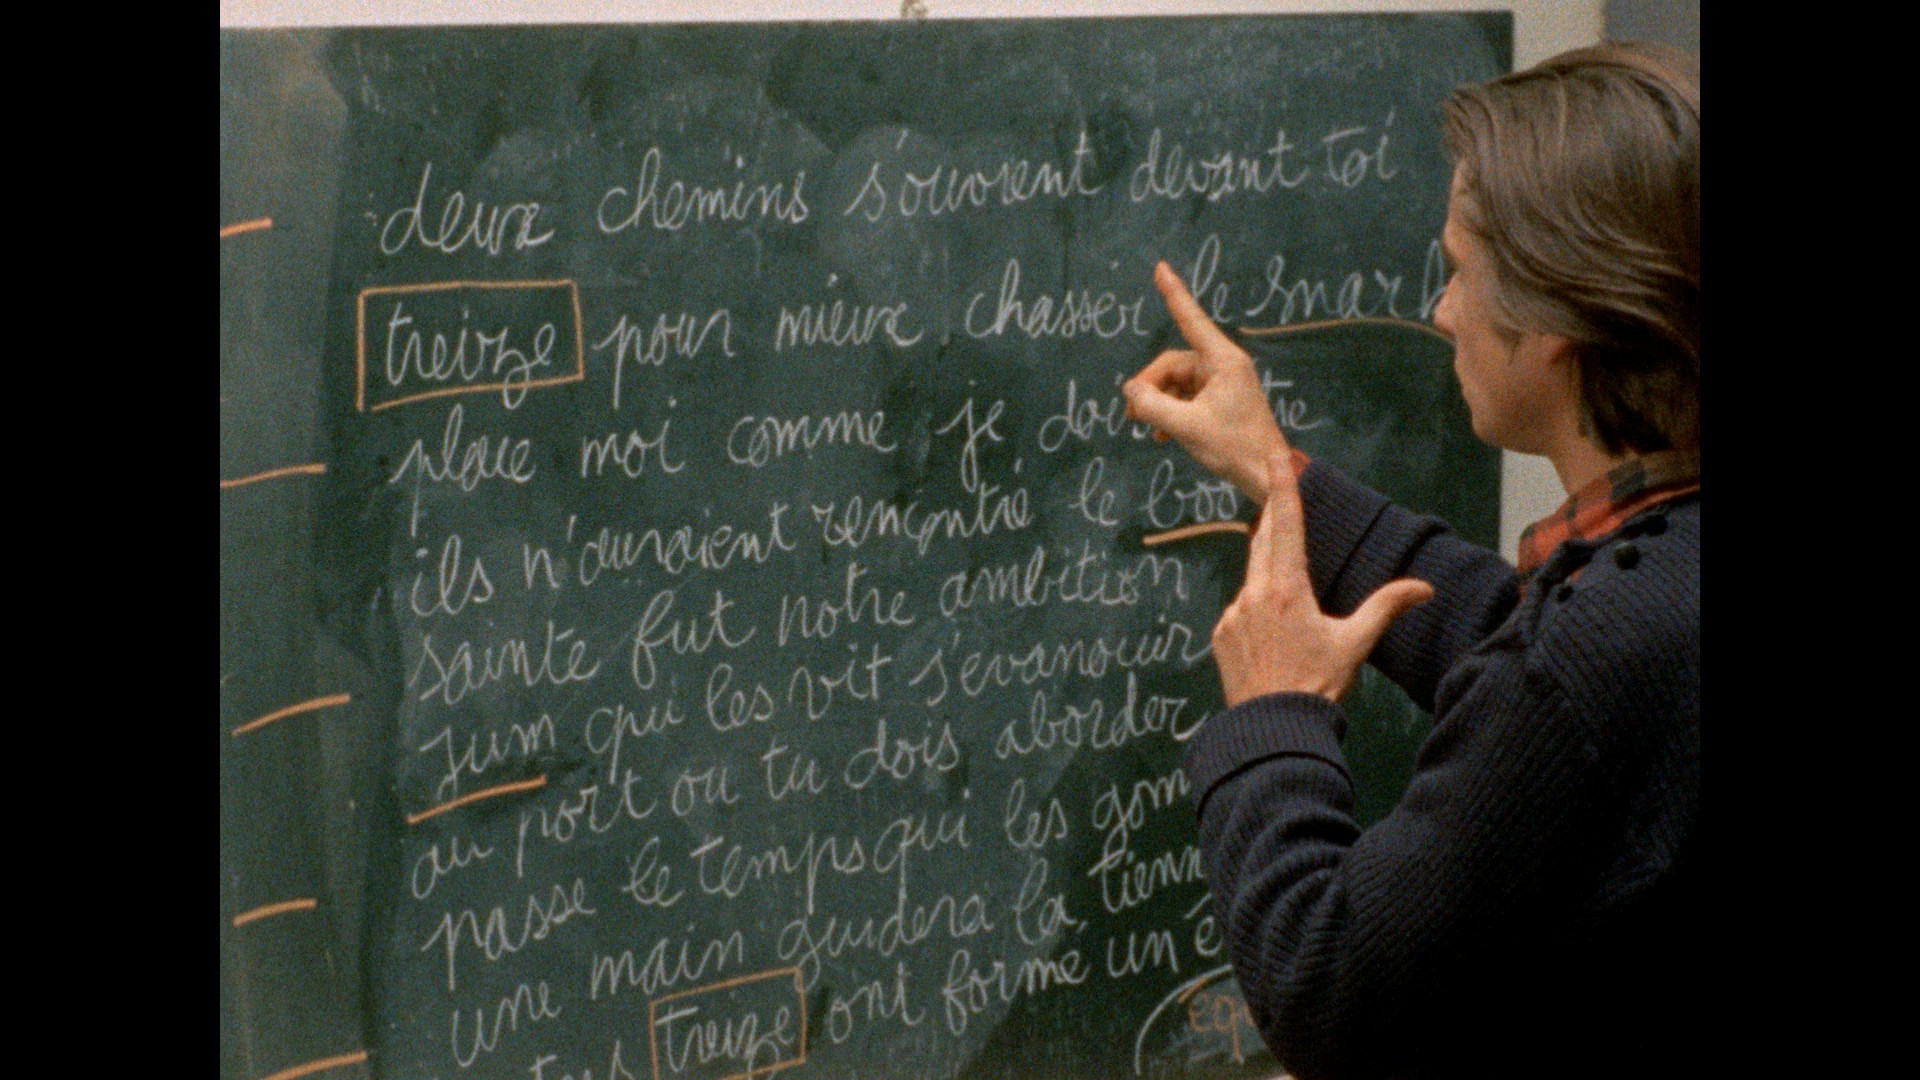 deux chemins s'ouvrent devant toi
treize pour mieux chasser le snark
place moi comme je dois
ils n'auraient rencontré le boo
sainte fut notre ambition
jum qui les vit s'evanouir
au port ou tu dois aborder
passe le temps qui les gom
une main guidera la tienn
treize ont formé un é
equ